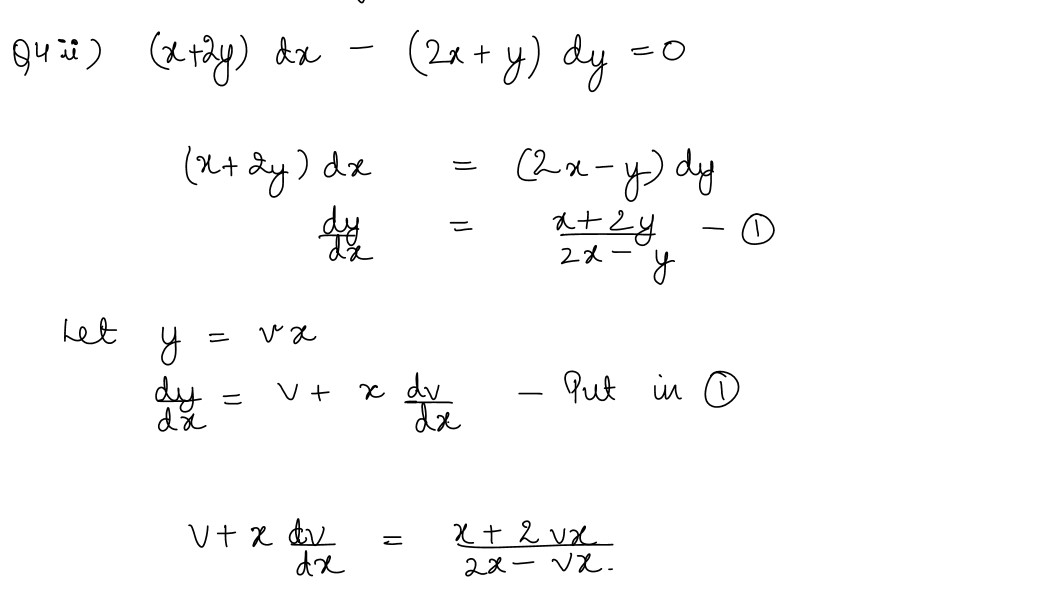 Q4 ii) (x+2y) dx - (2x + y) dy = 0
(x+2y) dx = (2x-y) dy
dy/dx = x+2y/2x-y - ①
Let y = vx
dy/dx = v + x dv/dx - Put in ①
v + x dv/dx = x + 2vx/2x - vx.